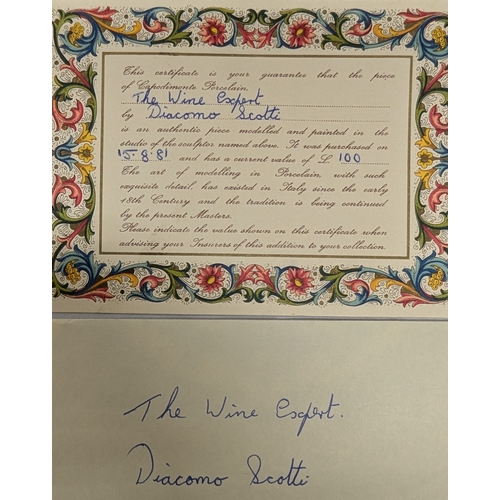 This certificate is your guarantee that the piece
of Capodimonte Porcelain,
The Wine Expert
by Diacomo Scotti
is an authentic piece modelled and painted in the
studio of the sculptor named above. It was purchased on
15.8.81 and has a current value of £ 100
The art of modelling in Porcelain, with such
exquisite detail, has existed in Italy since the early
18th Century and the tradition is being continued
by the present Masters.
Please indicate the value shown on this certificate when
advising your Insurers of this addition to your collection.
The Wine Expert.
Diacomo Scotti